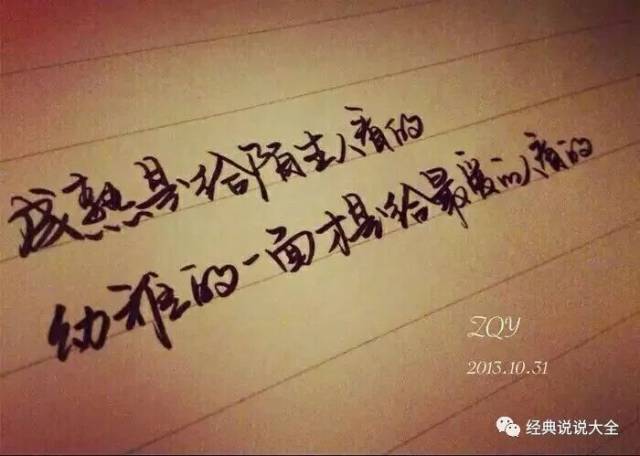 成熟是给陌生人看的
幼稚的一面才是给最爱的人看的
ZQY
2013.10.31
经典说说大全